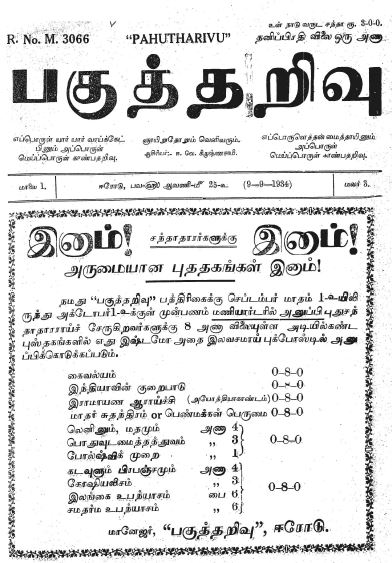 உள் நாடு வருட சந்தா ரூ. 3-0-0.
R. No. M. 3066 "PAHUTHARIVU" தனிப்பிரதி விலை ஒரு அணா
பகுத்தறிவு
எப்பொருள் யார் யார் வாய்க்கேட் ஞாயிறுதோறும் வெளிவரும். எப்பொருளெத்தன்மைத்தாயினும்
பினும் அப்பொருள் ஆசிரியர்:- ஈ. வே. கிருஷ்ணசாமி. அப்பொருள்
மெய்ப்பொருள் காண்பதறிவு. மெய்ப்பொருள் காண்பதறிவு.
மாலை 1. ஈரோடு, ஆவணி-மீ 25-உ (9-9-1934) மலர் 3.
இனாம்! சந்தாதாரர்களுக்கு இனாம்!
அருமையான புத்தகங்கள் இனாம்!
நமது "பகுத்தறிவு" பத்திரிகைக்கு செப்டம்பர் மாதம் 1-உயிலி
ருந்து அக்டோபர் 1-உக்குள் முன்பணம் மணியார்டரில் அனுப்பி புதுசந்
தாதாரராய்ச் சேருகிறவர்களுக்கு 8 அணா விலையுள்ள அடியில்கண்ட
புஸ்தகங்களில் எது இஷ்டமோ அதை இலவசமாய் புக்போஸ்டில் அனு
ப்பிக்கொடுக்கப்படும்.
கைவல்யம் 0-8-0
இந்தியாவின் குறைபாடு 0-8-0
இராமாயண ஆராய்ச்சி (அயோத்தியாகாண்டம்) 0-8-0
மாதர் சுதந்திரம் or பெண்மக்கள் பெருமை 0-8-0
லெனினும், மதமும் அணா 4
பொதுவுடமைத்தத்துவம் ,, 3 0-8-0
போல்ஷ்விக் முறை ,, 1
கடவுளும் பிரபஞ்சமும் அணா 4
சோஷியலிசம் ,, 3 0-8-0
இலங்கை உபந்யாசம் பை 6
சமதர்ம உபந்யாசம் ,, 6
மானேஜர், "பகுத்தறிவு", ஈரோடு.